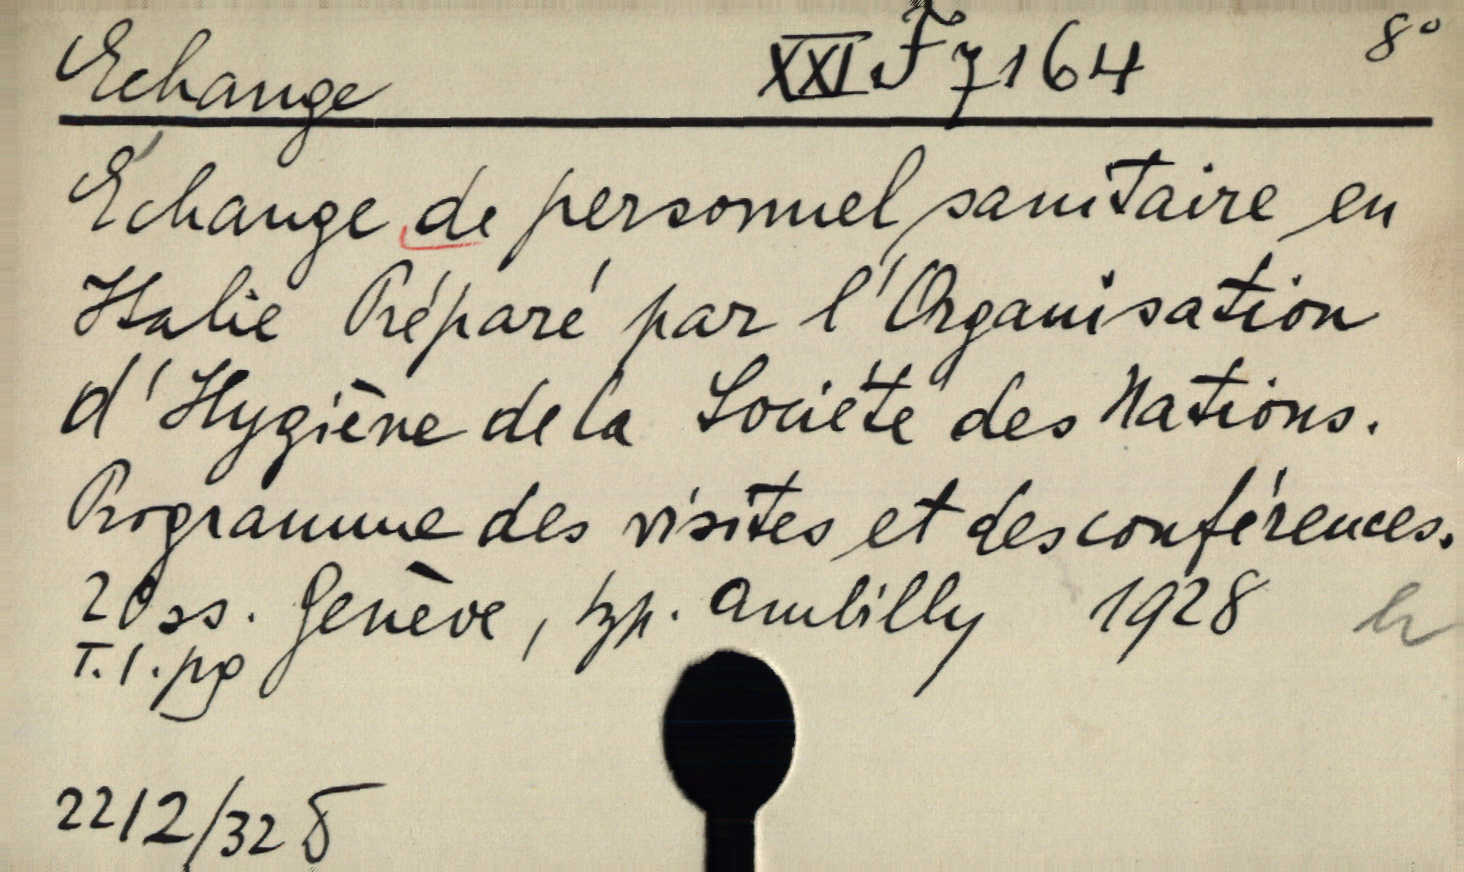 Echange XXI F 7164 8°
Échange de personnel sanitaire en
Italie Préparé par l'Organisation
d'Hygiène de la Société des Nations.
Programme des visites et des conférences.
20 ss. Genève, typ. Ambilly 1928
T. 1. pg
2212/32